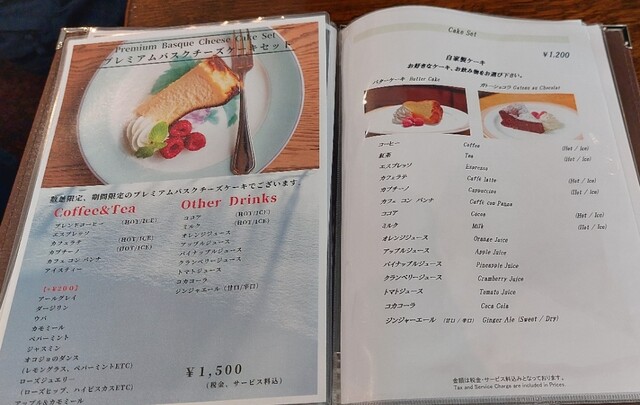 Premium Basque Cheese Cake Set
プレミアムバスクチーズケーキセット
数量限定、期間限定のプレミアムバスクチーズケーキでございます。
Coffee&Tea
ブレンドコーヒー (HOT/ICE)
エスプレッソ
カフェラテ (HOT/ICE)
カプチーノ (HOT/ICE)
カフェ コン パンナ
アイスティー
【+¥200】
アールグレイ
ダージリン
ウバ
カモミール
ペパーミント
ジャスミン
オコジョのダンス
(レモングラス、ペパーミントETC)
ローズジュエリー
(ローズヒップ、ハイビスカスETC)
アップル&カモミール
Other Drinks
ココア (HOT/ICE)
ミルク (HOT/ICE)
オレンジジュース
アップルジュース
パイナップルジュース
クランベリージュース
トマトジュース
コカコーラ
ジンジャエール(甘口/辛口)
¥1,500
(税金、サービス料込)
Cake Set
¥1,200
自家製ケーキ
お好きなケーキ、お飲み物をお選び下さい。
バターケーキ Butter Cake
ガトーショコラ Gateau au Chocolat
コーヒー Coffee (Hot / Ice)
紅茶 Tea (Hot / Ice)
エスプレッソ Espresso
カフェラテ Caffè latte (Hot / Ice)
カプチーノ Cappuccino (Hot / Ice)
カフェ コン パンナ Caffè con Panna
ココア Cocoa (Hot / Ice)
ミルク Milk (Hot / Ice)
オレンジジュース Orange Juice
アップルジュース Apple Juice
パイナップルジュース Pineapple Juice
クランベリージュース Cramberry Juice
トマトジュース Tomato Juice
コカコーラ Coca Cola
ジンジャーエール (甘口 / 辛口) Ginger Ale (Sweet / Dry)
金額は税金・サービス料込みとなっております。
Tax and Service Charge are included in Prices.